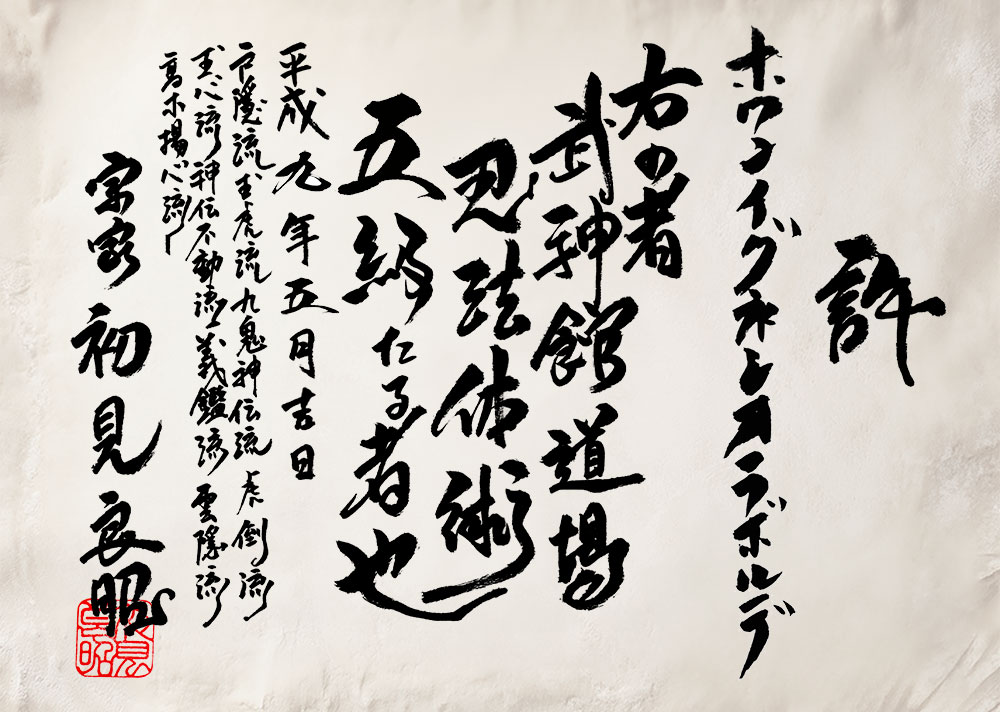 許
右の者
武神館道場
忍法体術
五級たる者也
平成九年五月吉日
戸隠流玉虎流九鬼神伝流虎倒流
玉心流神伝不動流義鑑流雲隠流
高木揚心流
宗家初見良昭